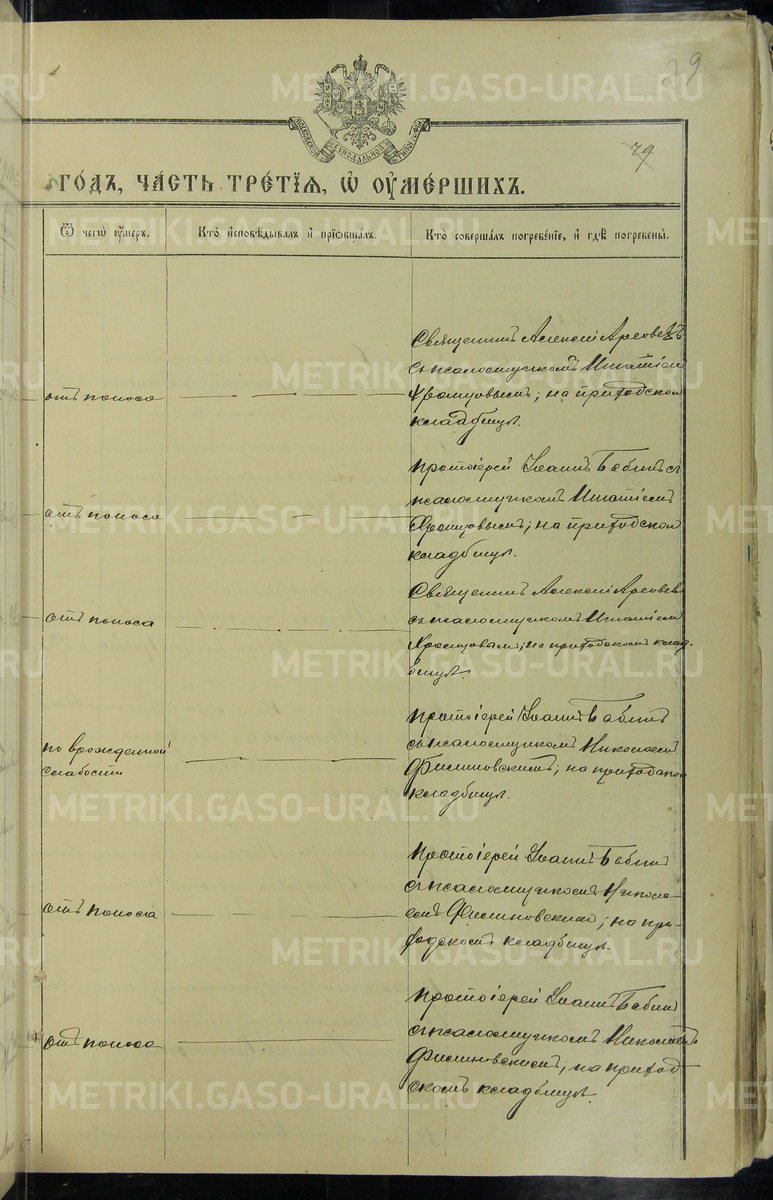 79
МОСКОВСКОЙ СѴНОДАЛЬНОЙ ТИПОГРАФІИ
79
ГОДЪ, ЧАСТЬ ТРЕТІЯ, Ѡ ОУМЕРШИХЪ.
Ѿ чегѡ оумеръ.
Кто исповѣдывалъ и пріобщалъ.
Кто совершалъ погребеніе, и гдѣ погребены.
отъ поноса
Священникъ Алексій
съ псаломщикомъ Игнатіем
на приходском
кладбищѣ.
отъ поноса
Протоіерей Іоаннъ Бабинъ съ
псаломщикомъ Игнатіемъ
на приходском
кладбищѣ.
отъ поноса
Священникъ Алексій
съ псаломщикомъ Игнатіем
на приходскомъ клад-
бищѣ.
по врожденной
слабости
Протоіерей Іоаннъ Бабинъ
съ псаломщикомъ Николаем
Филиновскимъ; на приходском
кладбищѣ.
отъ поноса
Протоіерей Іоаннъ Бабин
съ псаломщикомъ Никола-
емъ Филиновским; на при-
ходскомъ кладбищѣ.
отъ поноса
Протоіерей Іоаннъ Бабин
съ псаломщикомъ Николаемъ
Филиновскимъ; на приход
скомъ кладбищѣ.
METRIKI.GASO-URAL.RU